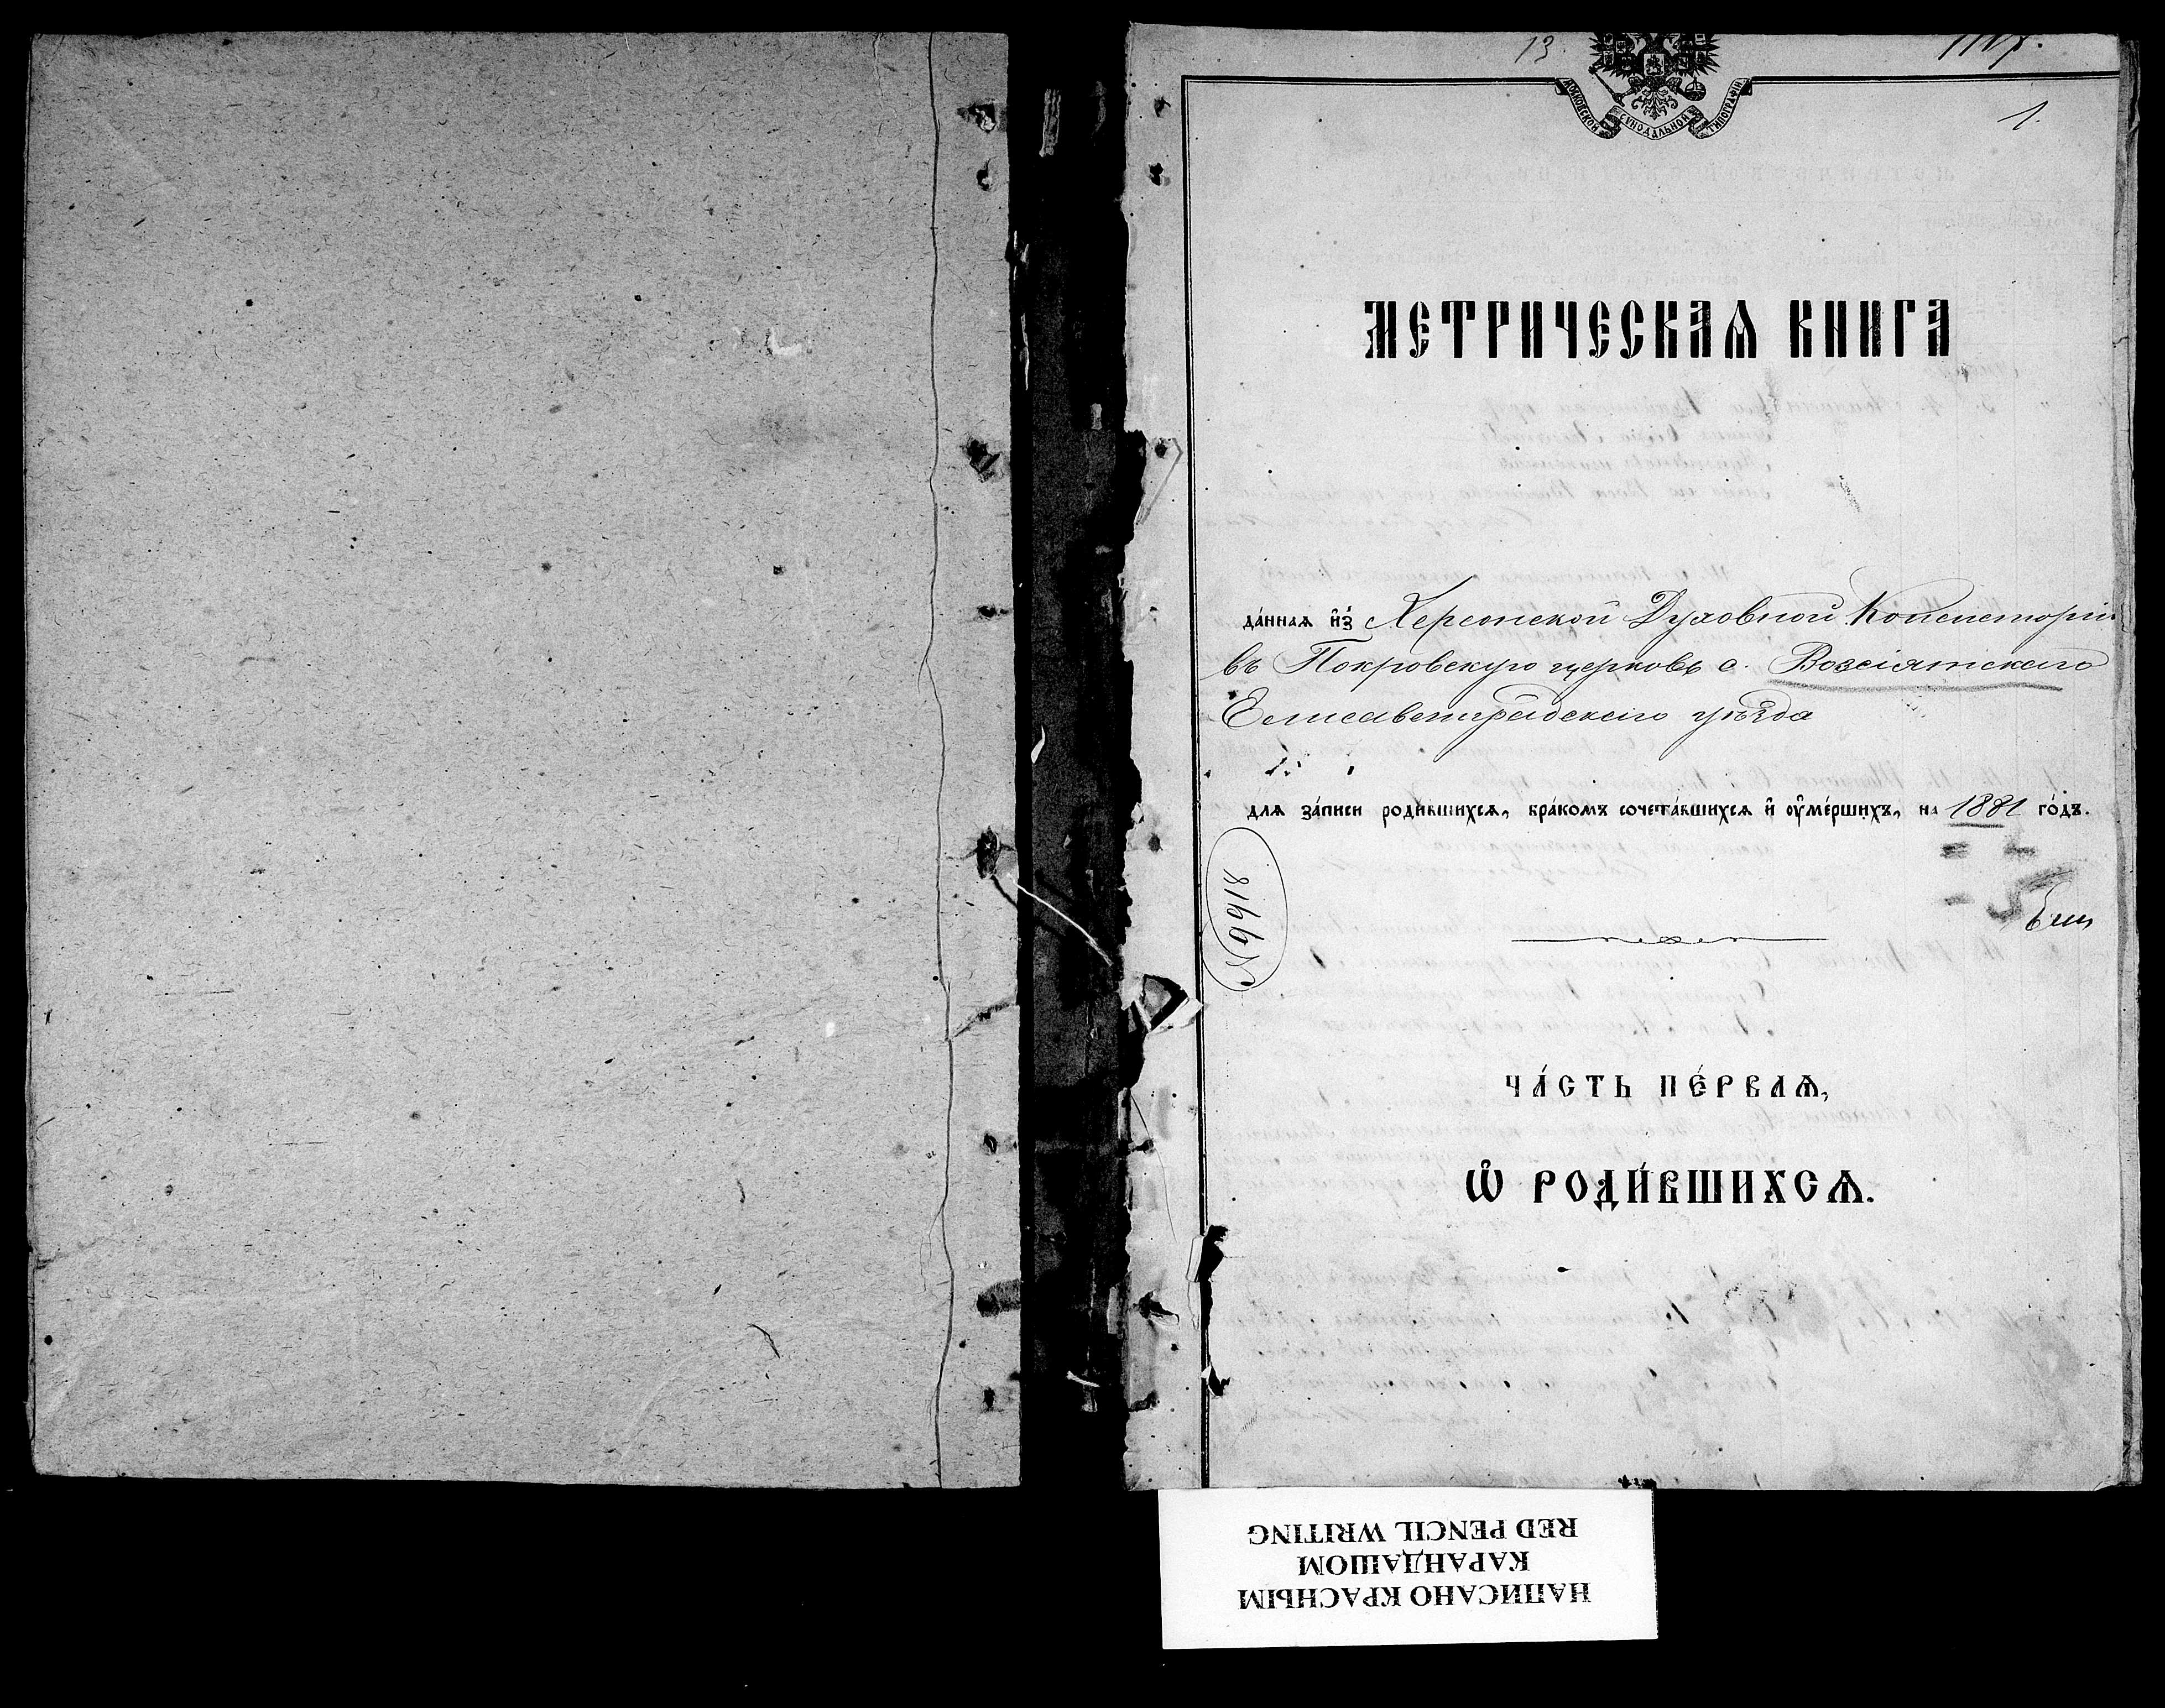 13.
МОСКОВСКОЙ СѴНОДАЛЬНОЙ ТИПОГРАФІИ
1.
МЕТРИЧЕСКАѦ КНИГА
да́ннаѧ и҆з̾ Херсонской Духовной Консисторіи
въ Покровскую церковь с. Возсіятскаго
Елисаветградскаго уѣзда
для за́писи роди́вшихсѧ, бра́комъ сочета́вшихсѧ и҆ ᲂу҆ме́ршихъ, на 1881 го́дъ.
ЧА́СТЬ ПЕ́РВАѦ,
Ѡ҆ РОДИ́ВШИХСѦ.
НАПИСАНО КРАСНЫМ
КАРАНДАШОМ
RED PENCIL WRITING